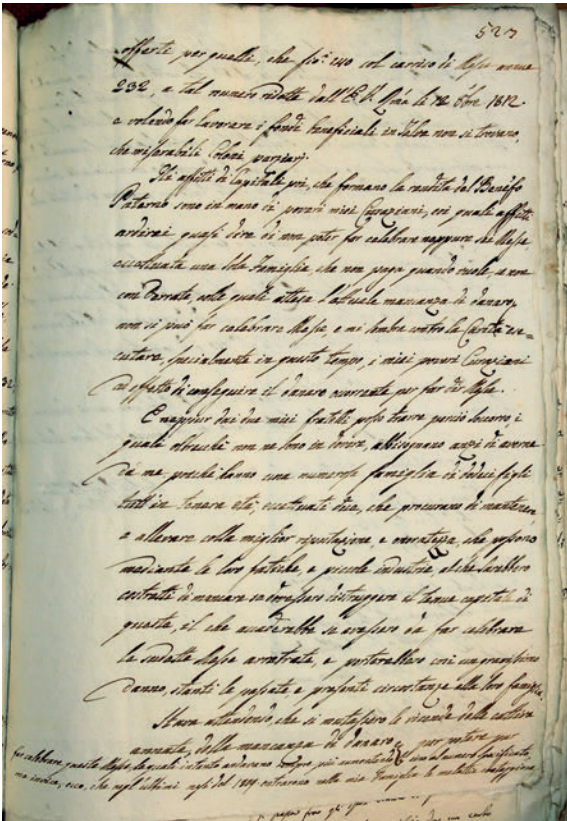 523
offerte per quelle, che fio: 240 col carico di Messe annue
232, a tal numero ridotte dall'E. V. Rma le 12 Obre 1812.
e volendo far lavorare i fondi beneficiali in Telve non si trovano,
che miserabili Coloni parziarj.
Gli affitti di Capitali poi, che formano la rendita del Benefo
Paterno sono in mano di poveri miei Curaziani, coi quali affitti
ardirei quasi dire di non poter far celebrare neppure una Messa
eccettuata una sola Famiglia, che non paga quando vuole, e non
con Derrate, colle quali attesa l'attuale mancanza di danaro,
non si può far celebrare Messe e mi sembra contro la Carità es=
cutare, specialmente in questo tempo, i miei poveri Curaziani
ad effetto di conseguire il danaro occorrente per far dir Messe.
E neppur dai due miei fratelli posso trarre perciò soccorso, i
quali oltrechè non ne sono in dovere, abbisognano anzi di averne
da me, perchè hanno una numerosa famiglia di dodeci figli
tutti in tenera età, eccettuati due, che procurano di mantenere,
e allevare colla miglior riputazione, e onoratezza, che possono
mediante le loro fatiche, e piccole industrie, al che sarebbero
costretti di mancare se dovessero distruggere il tenue capitale di
questa, il che accaderebbe se avessero da far celebrare
le sudette Messe arretrate, e porterebbero così un gravissimo
danno, stanti le passate, e presenti circostanze alla loro famiglia.
Stava attendendo, che si mutassero le vicende delle cattive
annate, della mancanza di danaro per potere pur
far celebrare queste Messe, le quali intanto andavano sempre più aumentando sino al numero specificato,
ma invece, ecco, che negl'ultimi mesi del 1809 entrarono nella mia Famiglia le malattie contagiose,